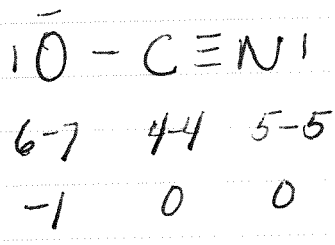 |Ō| - C ≡ N|
6-7 4-4 5-5
-1 0 0